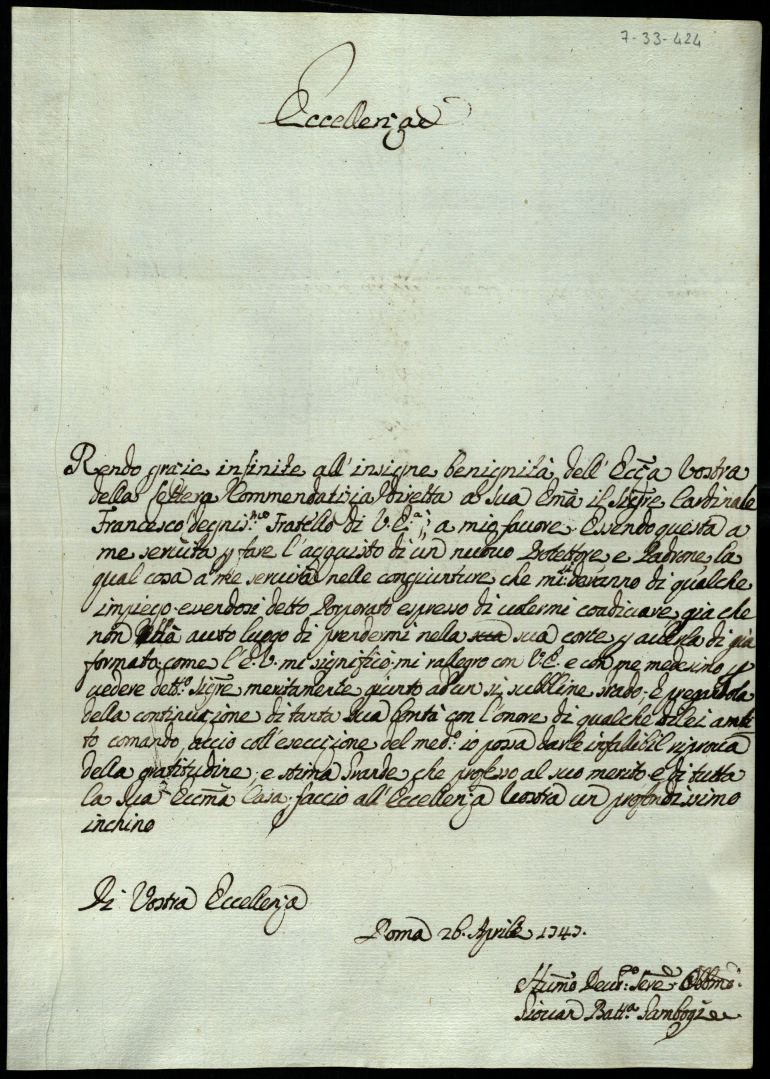 7-33-424
Eccellenza
Rendo grazie infinite all'insigne benignità dell'Ecc:za Vostra
della lettera Kommendatizia diretta a Sua Em:a il Sig:re Cardinale
Francesco degnis:mo Fratello di V. E.a, a mio favore. Essendo questa a
me servita p fare l'acquisto di un nuovo Protettore, e Padrone, la
qual cosa a me servirà nelle congiunture che mi si daranno di qualche
impiego. essendosi detto Porporato espresso di volermi coadiuvare, già che
non hà auto luogo di prendermi nella sua corte p averla di già
formata come l'E.V. mi significò. mi rallegro con V.E. e con me medesimo p
vedere dett.o Sig:re meritamente giunto ad un si sublime Grado, e pregandola
della continuazione di tanta sua bontà con l'onore di qualche di lei ambi
to comando, acciò coll'esecuzione del med.o io possa darle infalibil riprova
della gratitudine, e stima Grande, che professo al suo merito e di tutta
la Sua Ecc:ma Casa, faccio all'Eccellenza Vostra un profondissimo
inchino
Di Vostra Eccellenza
Roma 26. Aprile 1743.
Hum:o Dev:mo Serv:e Obbl:mo
Giovan Batt.a